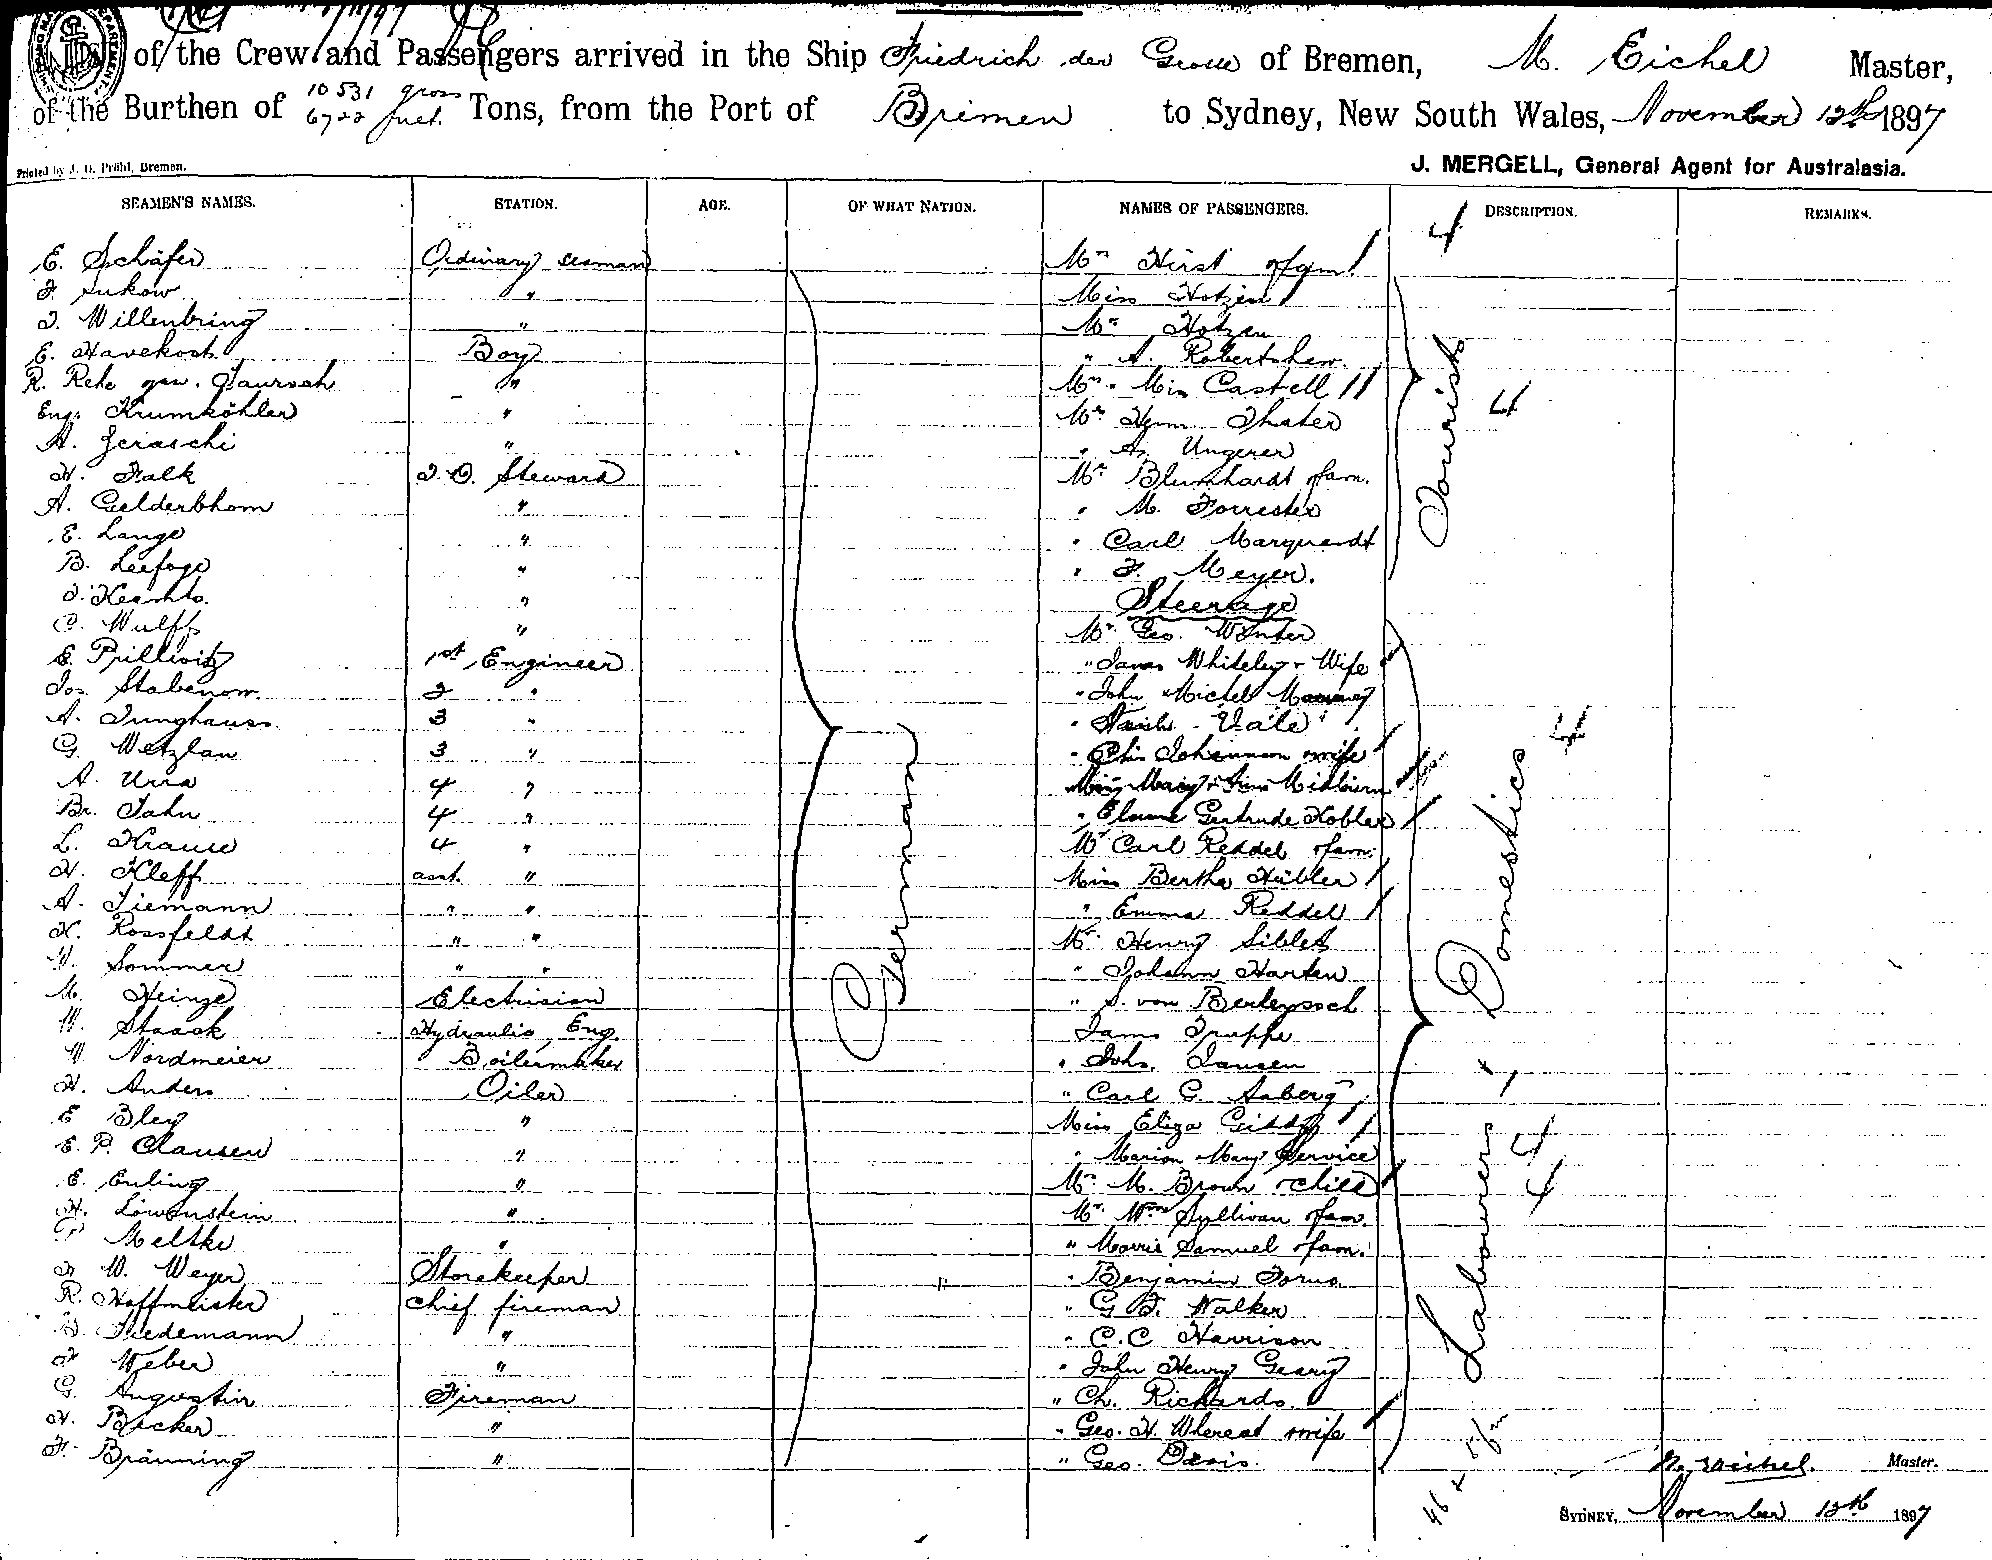 of the Crew and Passengers arrived in the Ship Friedrich der Grosse of Bremen, M. Eichel Master,
of the Burthen of 10531 gross 6722 Tons, from the Port of Bremen to Sydney, New South Wales, November 12th 1897
Printed by J. D. Pröhl, Bremen.
J. MERGELL, General Agent for Australasia.
SEAMEN'S NAMES. STATION. AGE. OF WHAT NATION. NAMES OF PASSENGERS. DESCRIPTION. REMARKS.
4
E. Schäfer Ordinary seaman Hirst
F. Sukow " Miss Hotzen
J. Willenbring " Mr Hotzen
E. Havekost Boy " A. Robertshaw
R. Rehe gen. " Miss Castell
Eng. Krumköhler " Thater 4
A. Jeraschi " " A. Ungerer
H. Falk Steward Mr Blumhardt fam.
A. Gelderbhom " " M. Forrester
E. Lange " " Carl Marquardt
B. Leefage " " F. Meyer.
" Steerage
C. Wulff " Mr Geo. Winter
E. Prillwitz 1st Engineer " James Whiteley + Wife
Jos. Stabenow 2 " " John Michel
A. Junghauss 3 " Vale
G. Wetzlau 3 " wife
A. Urra 4 "
Br. Jahn 4 " Gertrude Kobler
L. Krause 4 " Mr Carl Reddel fam.
H. Kleff asst. " Miss Bertha Hübler
A. Tiemann " " " Emma Reddel
H. Rossfeldt " " Mr Henry
W. Sommer " " " Johann Harten
M. Heinze Electrician " S. von
W. Staack Hydraulic Eng. James
W. Nordmeier Boilermaker " Johs. Jansen
H. Anders Oiler " Carl G. Aaberg
E Bley " Miss Eliza
E. P. Clausen " " Marion Mary Service
E. Euling " M. Brown + child
H. Löwenstein " Mr Wm Sullivan fam.
Meltke " " Morris Samuel + fam.
W. Weyer Storekeeper " Benjamin
R. Hoffmeister chief fireman " G. Walker
Tiedemann " " C. C. Harrison
Weber " " John Henry Geary
G. Augustin Fireman " Ch. Richards
H. Becker " " Geo. H. Whereat + wife
F. Bräuning " " Geo. Davis
German
Tourists
Domestics 4
Labourers 4 4
Master.
SYDNEY, November 12th 1897